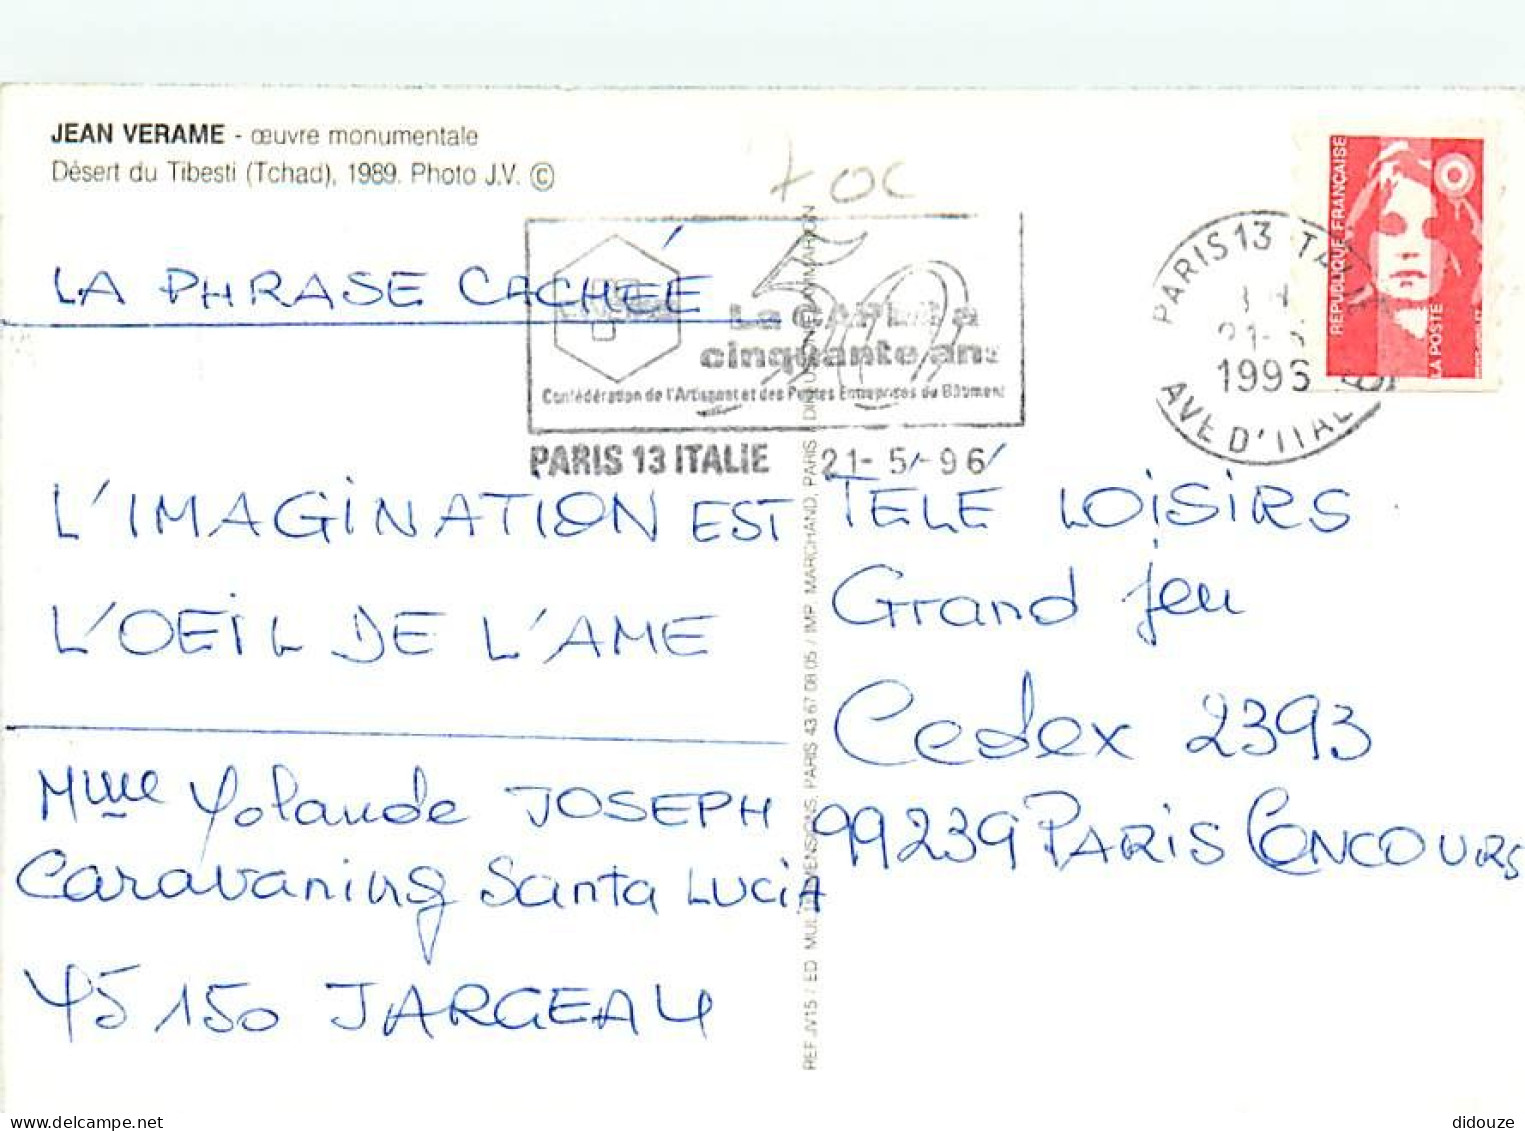 JEAN VERAME - œuvre monumentale
Désert du Tibesti (Tchad), 1989. Photo J.V. ©
LA PHRASE CACHEÉ
50
La CAPEB a
cinquante ans
Confédération de l'Artisanat et des Petites Entreprises du Bâtiment
PARIS 13 ITALIE 21-5-96
PARIS 13
21-
1996
AVE D'ITALIE
REPUBLIQUE FRANÇAISE
LA POSTE
L'IMAGINATION EST
L'OEIL DE L'AME
Mme Yolande JOSEPH
Caravaning Santa LUCIA
45150 JARGEAU
TELE LOISIRS
Grand Jeu
Cedex 2393
99239 PARIS CONCOURS
REF JV15 / ED MULTIDIMENSIONS, PARIS 43 67 08 05 / IMP. MARCHAND, PARIS / DIFFUSION
didouze